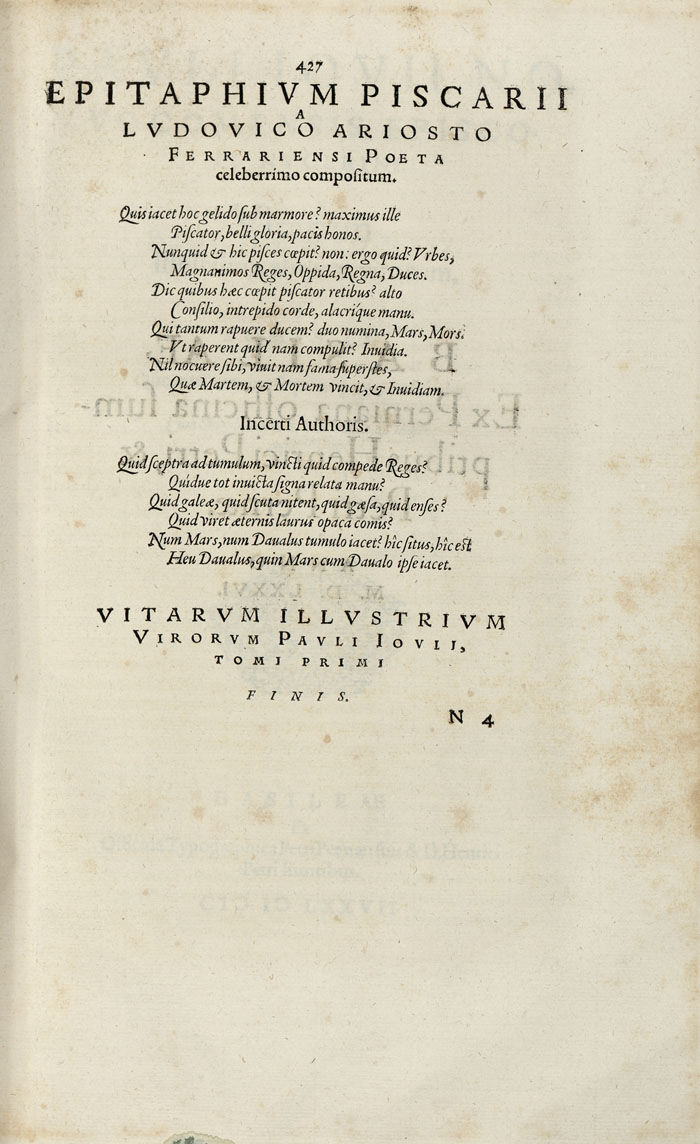 427
EPITAPHIVM PISCARII
A
LVDOVICO ARIOSTO
FERRARIENSI POETA
celeberrimo compoſitum.
Quis iacet hoc gelido ſub marmore? maximus ille
Piſcator, belli gloria, pacis honos.
Nunquid & hic piſces cœpit? non: ergo quid? Vrbes,
Magnanimos Reges, Oppida, Regna, Duces.
Dic quibus hæc cœpit piſcator retibus? alto
Conſilio, intrepido corde, alacriq́ue manu.
Qui tantum rapuere ducem? duo numina, Mars, Mors.
Vt raperent quid nam compulit? Inuidia.
Nil nocuere ſibi, viuit nam fama ſuperſtes,
Quæ Martem, & Mortem vincit, & Inuidiam.
Incerti Authoris.
Quid ſceptra ad tumulum, vincti quid compede Reges?
Quidue tot inuicta ſigna relata manu?
Quid galeæ, quid ſcuta nitent, quid gæſa, quid enſes?
Quid viret æternis laurus opaca comis?
Num Mars, num Daualus tumulo iacet? hîc ſitus, hîc eſt
Heu Daualus, quin Mars cum Daualo ipſe iacet.
VITARVM ILLVSTRIVM
VIRORVM PAVLI IOVII,
TOMI PRIMI
FINIS.
N 4